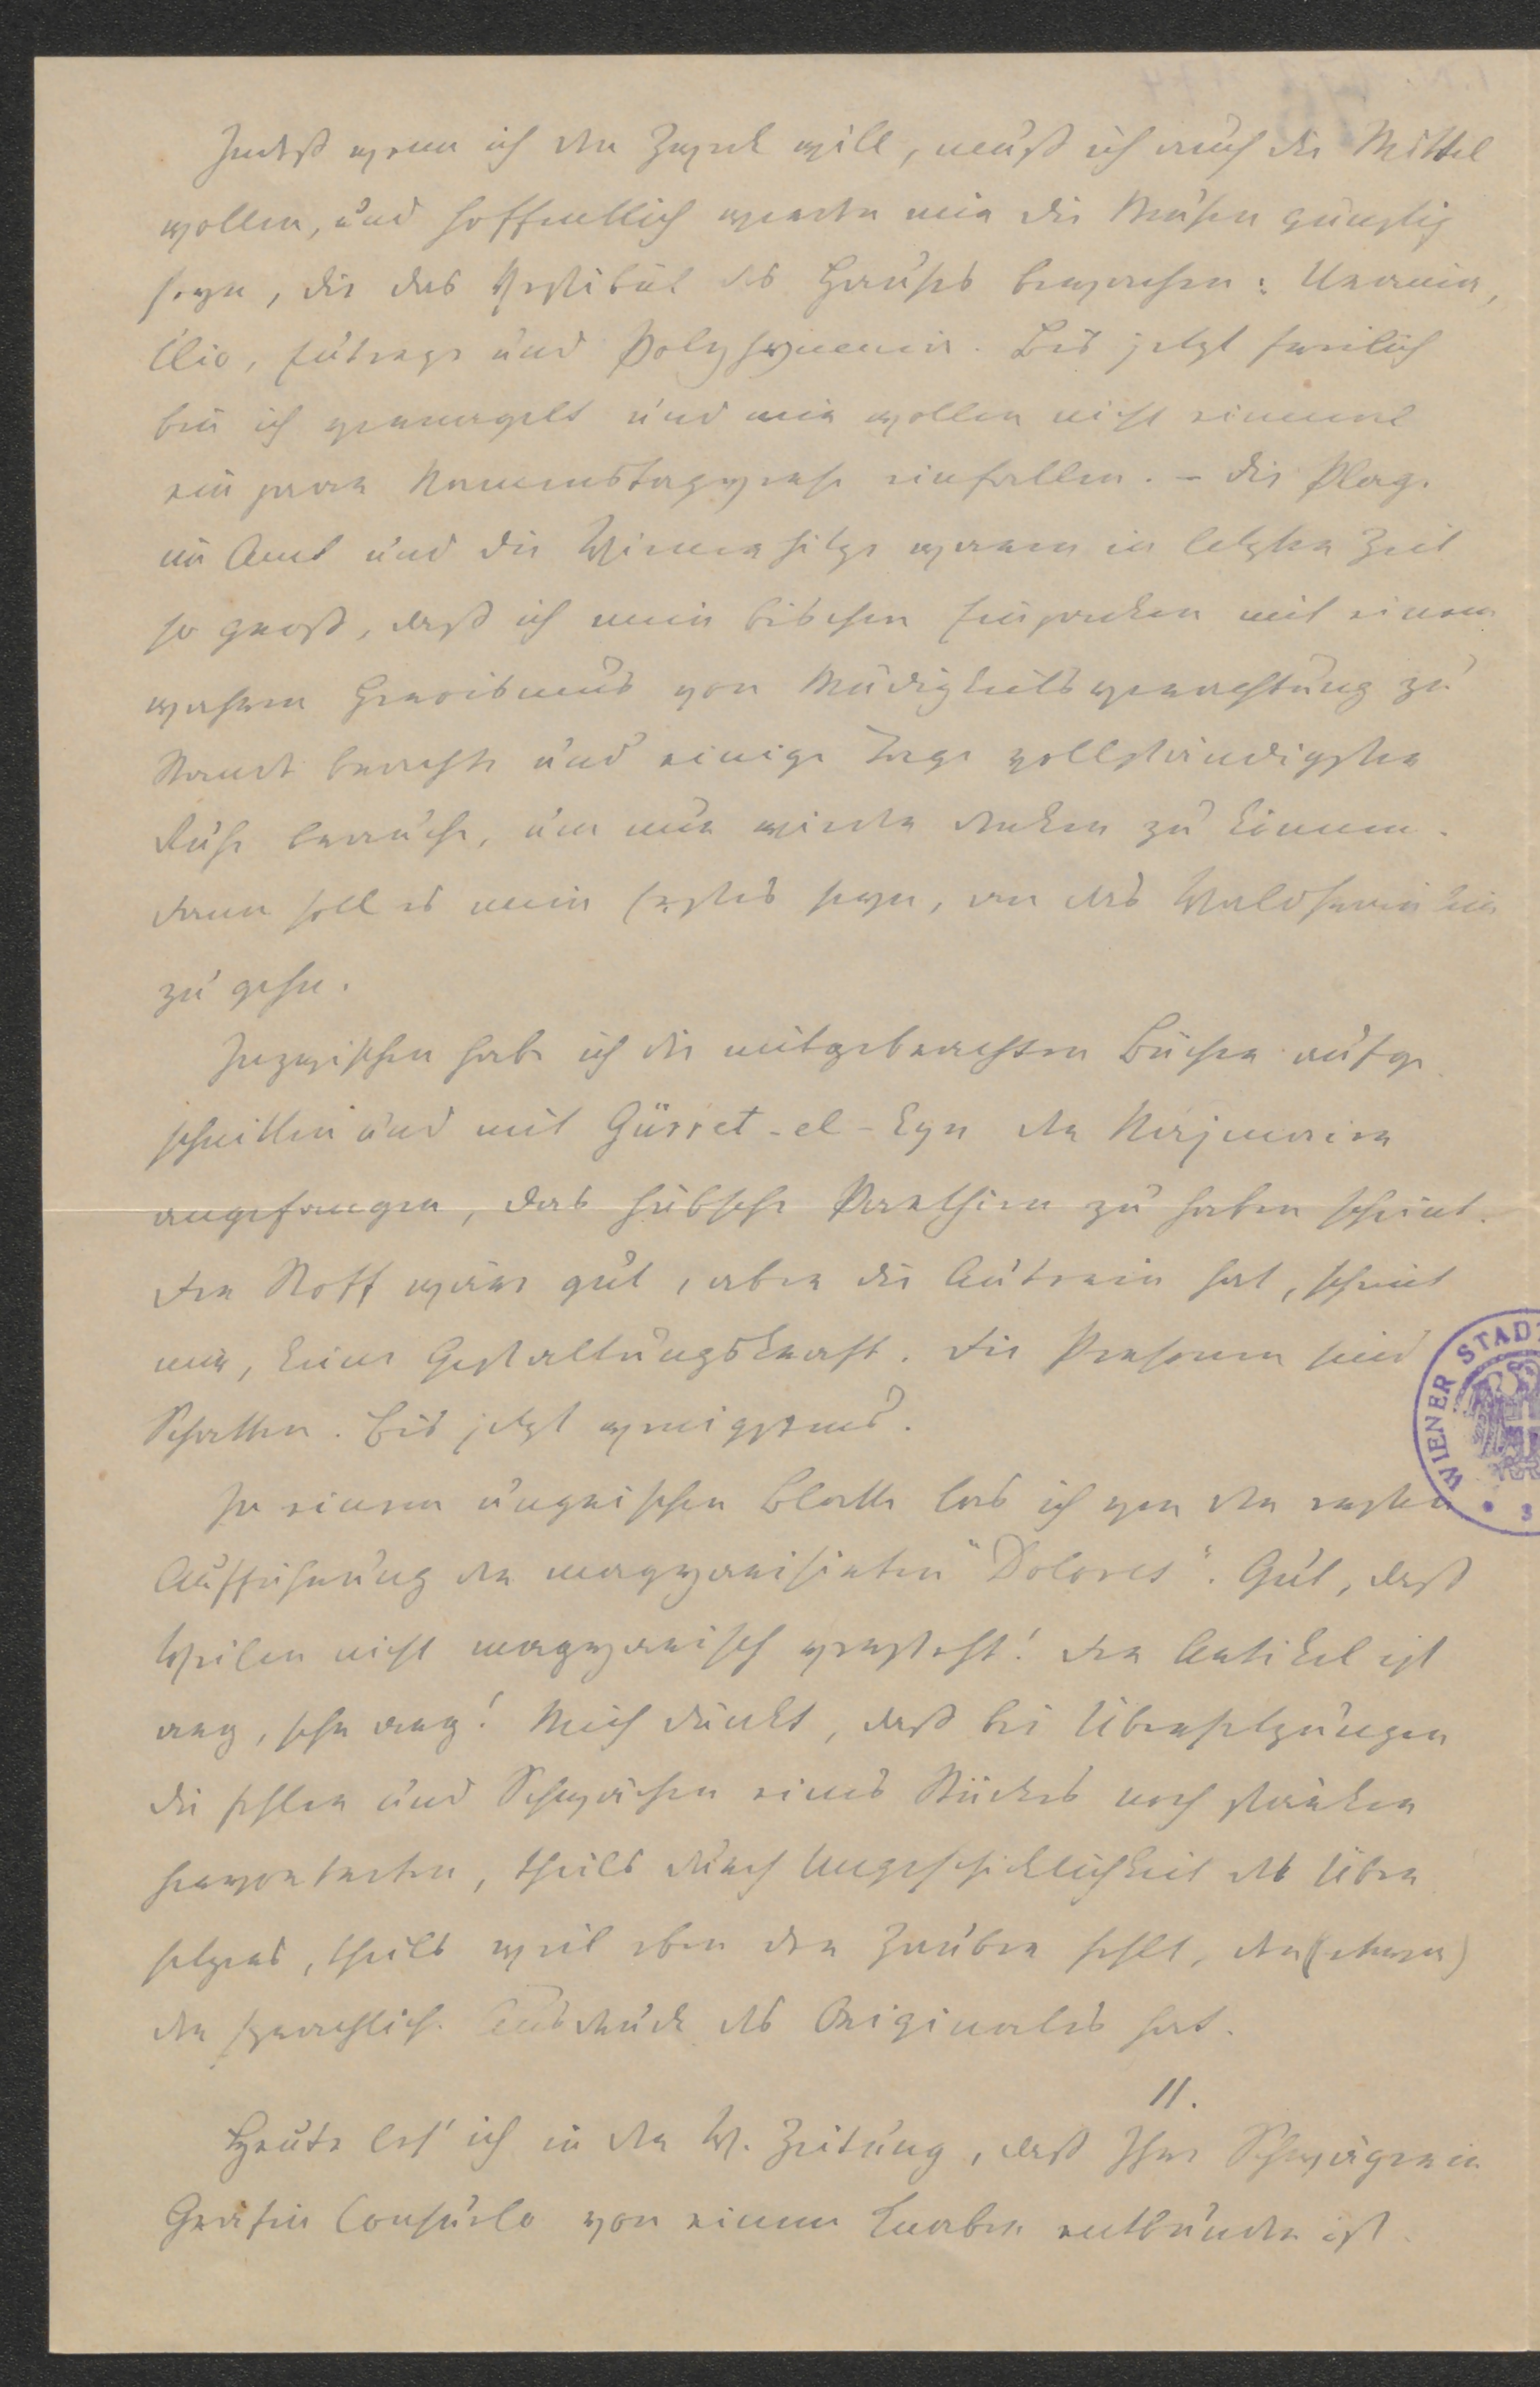 Indeß wenn ich den Zweck will, muß ich auch die Mittel
wollen, und hoffentlich werden mir die Musen günstig
seyn, die das Vestibül des Hauses bewachen: Urania,
Clio, Euterpe und Polyhymnia. Bis jetzt freilich
bin ich vernagelt und mir wollen nicht einmal
ein paar Namenstagverse einfallen. – Die Plage
im Amt und die Wiener Hitze waren in letzter Zeit
so groß, daß ich mein bischen Einpacken mit einem
wahren Heroismus von Müdigkeitsverachtung zu
Stande brachte und einige Tage vollständigster
Ruhe brauche, um nur wieder denken zu können.
Dann soll es mein Erstes seyn, an das Waldfräulein
zu gehn.
Inzwischen habe ich die mitgebrachten Bücher aufge
schnitten und mit Gürret-el-Eyn der Najmajer
angefangen, das hübsche Parthien zu haben scheint.
Der Stoff wäre gut, aber die Autorin hat, scheint
mir, keine Gestaltungskraft. Die Personen sind
Schatten. Bis jetzt wenigstens.
In einem ungrischen Blatte las ich von der ersten
Aufführung der magyarisirten "Dolores". Gut, daß
Weilen nicht magyarisch versteht! Der Artikel ist
arg, sehr arg! Mich dünkt, daß bei Übersetzungen
die Fehler und Schwächen eines Stückes noch stärker
hervortreten, theils durch Ungeschicklichkeit des Über
setzers, theils weil eben der Zauber fehlt, den
der sprachlich. Ausdruck des Originales hat.
11.
Heute les' ich in der W. Zeitung, daß Ihre Schwägerin
Gräfin Consuelo von einem Knaben entbunden ist.
WIENER STAD
3